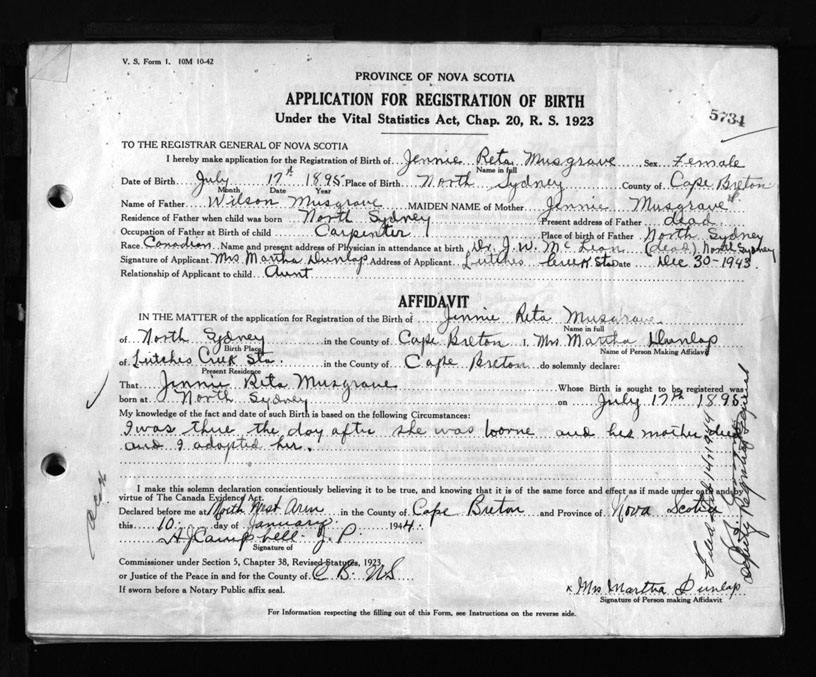 V. S. Form 1. 10M 10-42
PROVINCE OF NOVA SCOTIA
APPLICATION FOR REGISTRATION OF BIRTH
5734
Under the Vital Statistics Act, Chap. 20, R. S. 1923
TO THE REGISTRAR GENERAL OF NOVA SCOTIA
I hereby make application for the Registration of Birth of Jennie Reta Musgrave Sex Female
Name in full
Date of Birth July 17th 1895 Place of Birth North Sydney County of Cape Breton
Month Date Year
Name of Father Wilson Musgrave MAIDEN NAME of Mother Jennie Musgrave
Residence of Father when child was born North Sydney Present address of Father dead
Occupation of Father at Birth of child Carpenter Place of birth of Father North Sydney
Race Canadian Name and present address of Physician in attendance at birth Dr. J. W. McLean (dead) North Sydney
Signature of Applicant Mrs Martha Dunlap Address of Applicant Lutches Creek Sta Date Dec 30-1943.
Relationship of Applicant to child Aunt
AFFIDAVIT
IN THE MATTER of the application for Registration of the Birth of Jennie Reta Musgrave
Name in full
of North Sydney in the County of Cape Breton I, Mrs. Martha Dunlap
Birth Place Name of Person Making Affidavit
of Lutches Creek Sta. in the County of Cape Breton do solemnly declare:
Present Residence
That Jennie Reta Musgrave Whose Birth is sought to be registered was
born at North Sydney on July 17th 1895
My knowledge of the fact and date of such Birth is based on the following Circumstances:
I was there the day after she was borne and his mother died
and I adopted her.
I make this solemn declaration conscientiously believing it to be true, and knowing that it is of the same force and effect as if made under oath and by
virtue of The Canada Evidence Act.
Declared before me at North West Arm in the County of Cape Breton and Province of Nova Scotia
this 10 day of January 1944.
H J Campbell J. P.
Signature of
Commissioner under Section 5, Chapter 38, Revised Statutes, 1923
or Justice of the Peace in and for the County of C B. NS
If sworn before a Notary Public affix seal.
x Mrs Martha Dunlap
Signature of Person making Affidavit
For Information respecting the filling out of this Form, see Instructions on the reverse side.
Deputy Registrar General